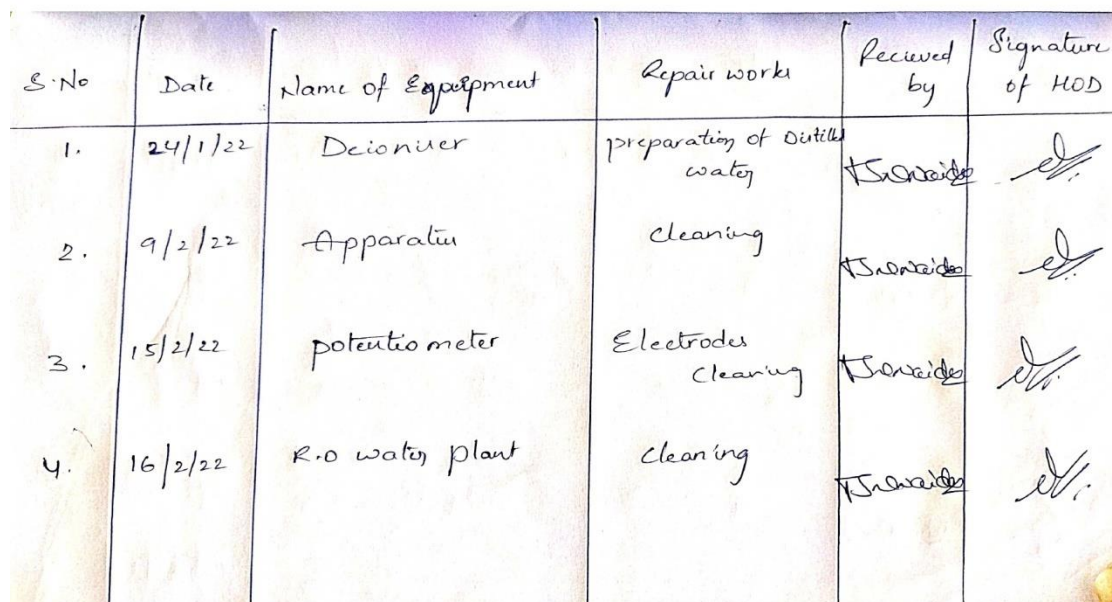 S.No Date Name of Equipment Repair works Recieved by Signature of HOD
1. 24/1/22 Deionizer preparation of Distilled water
2. 9/2/22 Apparatus cleaning
3. 15/2/22 potentiometer Electrodes cleaning
4. 16/2/22 R.O water plant cleaning